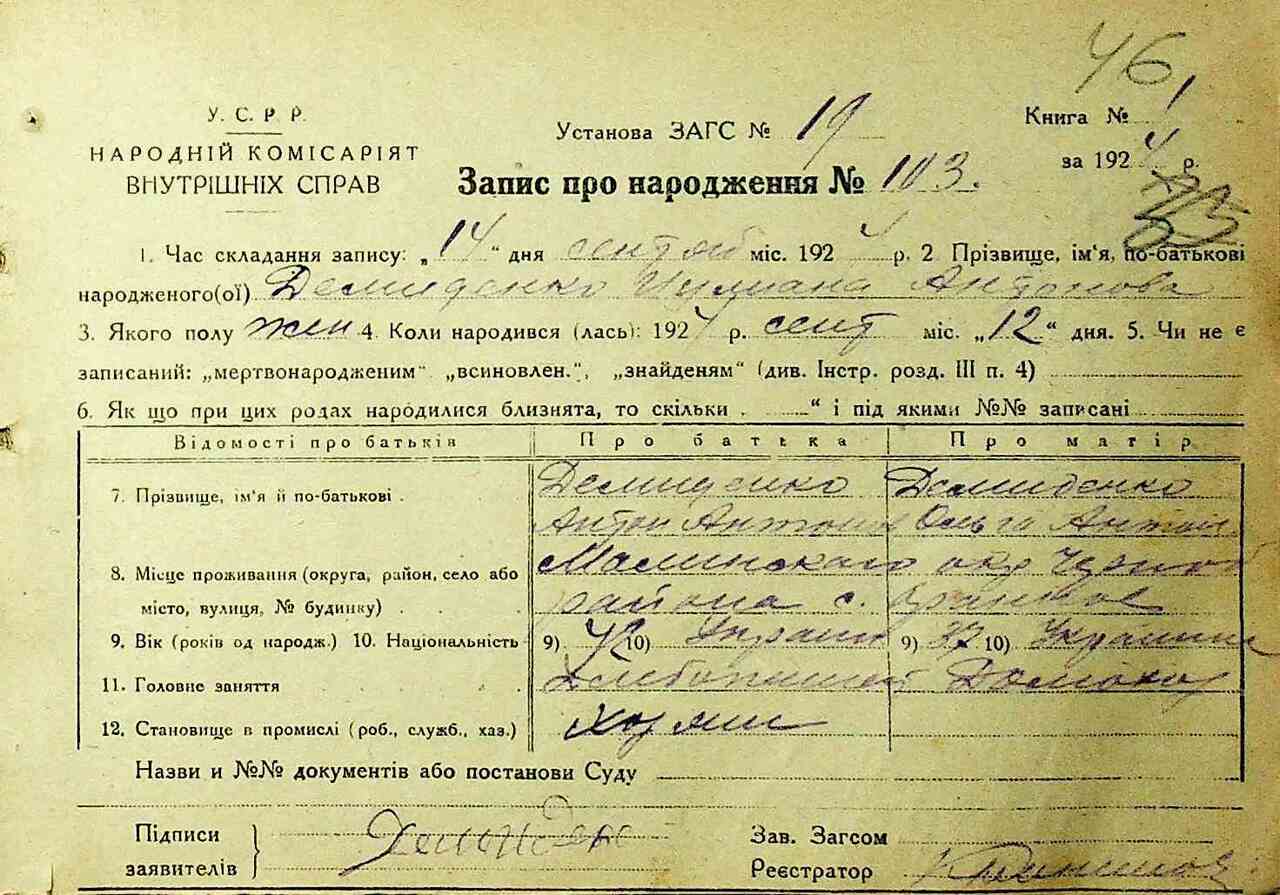 46
У. С. Р. Р.
НАРОДНІЙ КОМІСАРІЯТ
ВНУТРІШНІХ СПРАВ
Установа ЗАГС № 19
Книга № 1
за 1924 р.
Запис про народження № 103.
1. Час складання запису: „14“ дня міс. 1924 р. 2 Прізвище, ім'я, по-батькові
народженого(ої) Демиденко Антонова
3. Якого полу жен 4. Коли народився (лась): 1924 р. сент міс. „12“ дня. 5. Чи не є
записаний: „мертвонародженим“ „всиновлен.“, „знайденям“ (див. Інстр. розд. III п. 4)
6. Як що при цих родах народилися близнята, то скільки . “ і під якими №№ записані
Відомості про батьків Про батька Про матір
7. Прізвище, ім'я й по-батькові . Демиденко Демиденко
Антон Ольга Антон
8. Місце проживання (округа, район, село або Малинскаго окр
місто, вулиця, № будинку) . . района с.
9. Вік (років од народж.) 10. Національність 9) 42 10) Украин 9) 37 10)
11. Головне заняття
12. Становище в промислі (роб., служб., хаз.)
Назви и №№ документів або постанови Суду
Підписи
заявителів
Зав. Загсом
Реєстратор